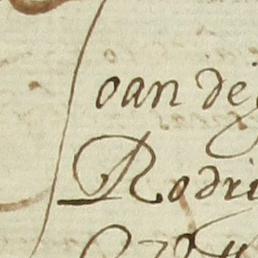 oan de
Rodri